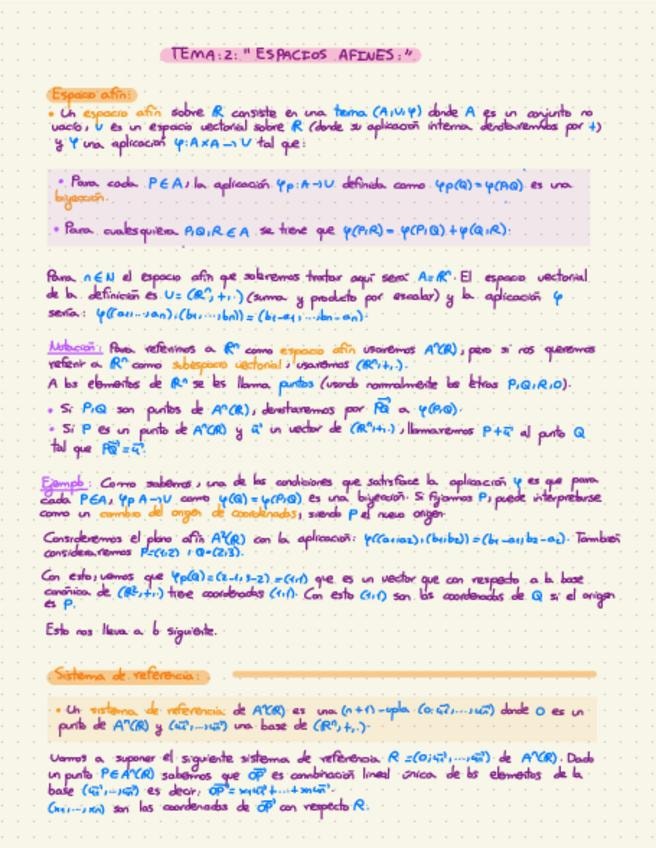 TEMA:2: "ESPACIOS AFINES:"
Espacio afín:
• Un espacio afín sobre R consiste en una terna (A,V,φ) donde A es un conjunto no
vacío, V es un espacio vectorial sobre R (donde su aplicación interna denotaremos por +)
y φ una aplicación φ:A×A→V tal que:
• Para cada P∈A, la aplicación φp:A→V definida como φp(Q)=φ(P,Q) es una
biyección.
• Para cualesquiera P,Q,R∈A se tiene que φ(P,R)=φ(P,Q)+φ(Q,R).
Para n∈N el espacio afín que sabremos tratar aquí será: A=Rⁿ. El espacio vectorial
de la definición es V=(Rⁿ,+,·) (suma y producto por escalar) y la aplicación φ
sería: φ((a₁,...,an),(b₁,...,bn))=(b₁-a₁,...,bn-an).
Notación: Para referirnos a Rⁿ como espacio afín usaremos Aⁿ(R), pero si nos queremos
referir a Rⁿ como subespacio vectorial, usaremos (Rⁿ,+,·).
A los elementos de Rⁿ se les llama puntos (usando normalmente las letras P,Q,R,O).
• Si P,Q son puntos de Aⁿ(R), denotaremos por PQ⃗ a φ(P,Q).
• Si P es un punto de Aⁿ(R) y u⃗ un vector de (Rⁿ,+,·), llamaremos P+u⃗ al punto Q
tal que PQ⃗=u⃗.
Ejemplo: Como sabemos, una de las condiciones que satisface la aplicación φ es que para
cada P∈A, φp A→V como φ(Q)=φ(P,Q) es una biyección. Si fijamos P, puede interpretarse
como un cambio del origen de coordenadas, siendo P el nuevo origen.
Consideremos el plano afín A²(R) con la aplicación: φ((a₁,a₂),(b₁,b₂))=(b₁-a₁,b₂-a₂). También
consideraremos P=(1,2) : Q=(2,3).
Con esto, vemos que φp(Q)=(2-1,3-2)=(1,1) que es un vector que con respecto a la base
canónica de (R²,+,·) tiene coordenadas (1,1). Con esto (1,1) son las coordenadas de Q si el origen
es P.
Esto nos lleva a lo siguiente.
Sistema de referencia:
• Un sistema de referencia de Aⁿ(R) es una (n+1)-upla (O;u₁⃗,...,un⃗) donde O es un
punto de Aⁿ(R) y (u₁⃗,...,un⃗) una base de (Rⁿ,+,·).
Vamos a suponer el siguiente sistema de referencia R=(O;u₁⃗,...,un⃗) de Aⁿ(R). Dado
un punto P∈Aⁿ(R) sabemos que OP⃗ es combinación lineal única de los elementos de la
base (u₁⃗,...,un⃗) es decir; OP⃗=x₁u₁⃗+...+xnun⃗.
(x₁,...,xn) son las coordenadas de OP⃗ con respecto R.